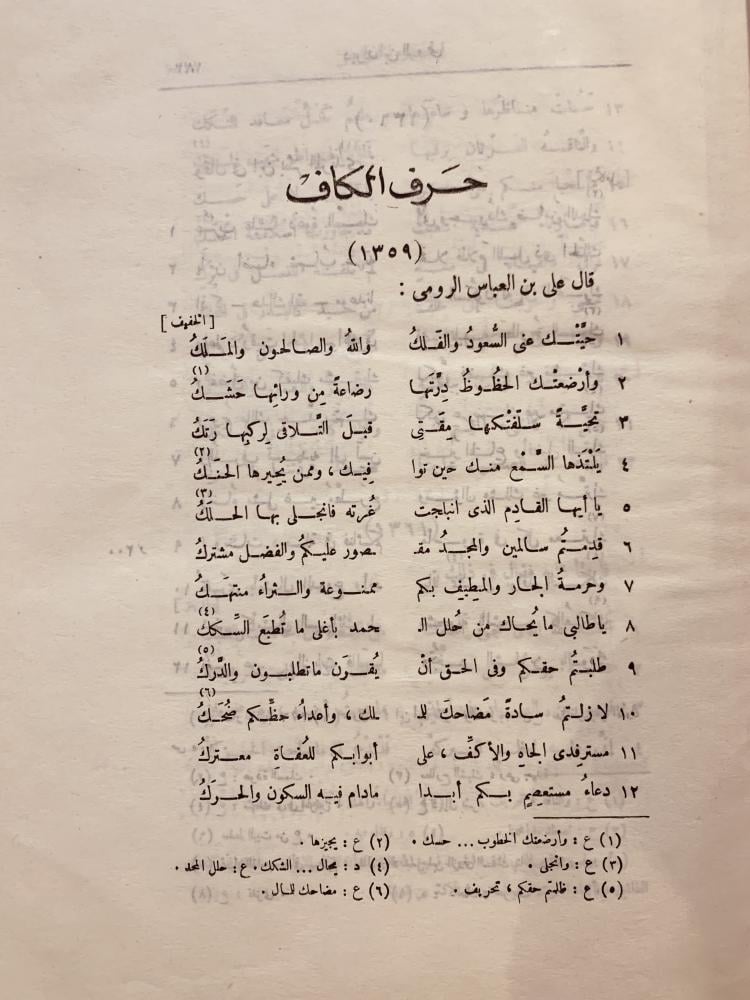 حرف الكاف
(١٣٥٩)
قال على بن العباس الرومى :
[ الخفيف ]
١ حيَّتْـك عنى السُّعودُ والفَلكُ واللهُ والصالحون والمَـلَكُ
٢ وأرْضعتْـك الحظُـوظُ دِرَّتَهـا رضاعةً مِن ورائِها حَشَـكُ (١)
٣ تحيَّـةً سلَفتْكهـا مِقَـتِى قبلَ التَّلاقى لِركبِها رَتَكُ
٤ يَلْتَذها السَّمْع منـك حين توا فِيـك ، وممن يُحِيرها الحنَـكُ (٢)
٥ يا أيهـا القادِم الذى انبلجت غُرته فانجـلى بهـا الحـلَكُ (٣)
٦ قدِمـتُم سـالمين والمجـدُ مقـ ـصور عليكمُ والفضل مشتركُ
٧ وحرمةُ الجـار والمطِيفِ بكم ممنـوعة والـثراءُ منتهَـكُ
٨ ياطالبى ما يُحـاك من حُلل الـ ـحمد بأغلى ما تُطبَع السِّككُ (٤)
٩ طلبـتُم حقـكم وفى الحـق أنْ يُقـرَن ماتطلبـون والدَّركُ (٥)
١٠ لا زلـتمُ سـادةً مَضاحكَ للـ ـلك ، وأعداءُ حظِّـكم ضُحَـكُ (٦)
١١ مسترفِدى الجاهِ والأكفِّ ، على أبوابـكم للعُفـاةِ معـتركُ
١٢ دعاءُ مستعصِمٍ بـكم أبـدا مادام فيـه السكون والحركُ
(١) ع : وأرضعتك الخطوب ... حسك . (٢) ع : يجيزها .
(٣) ع : وانجلى . (٤) د : يحال ... الشكك . ع : حلل المجد .
(٥) ع : ظلمتم حقكم ، تحريف . (٦) ع : مضاحك للمال .